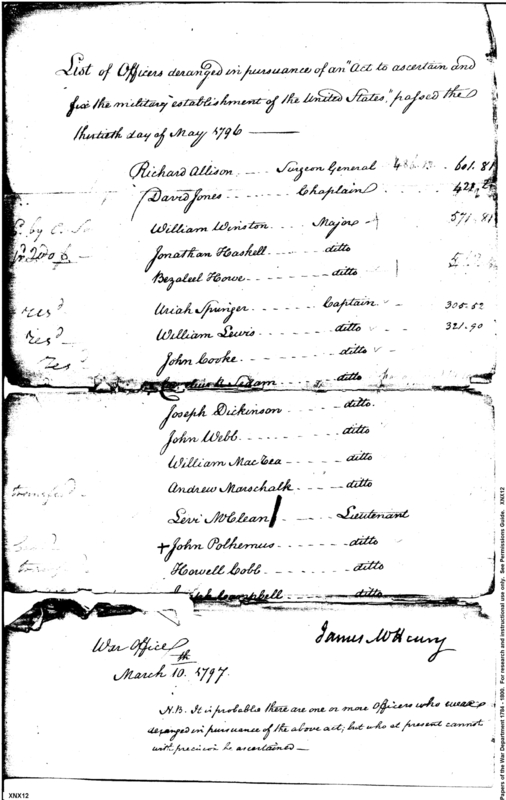 List of Officers deranged in pursuance of an "Act to ascertain and
fix the military establishment of the United States," passed the
thirtieth day of May 1796 —
Richard Allison Surgeon General 601.81
David Jones Chaplain
William Winston Major 571.81
Jonathan Haskell ditto
Bezaleel Howe ditto
Uriah Springer Captain 305.52
res^d William Lewis ditto 321.90
res^d John Cooke ditto
res^d Sedam ditto
Joseph Dickinson ditto
John Webb ditto
William MacRea ditto
Andrew Marschalk ditto
Levi McClean Lieutenant
+ John Polhemus ditto
Howell Cobb ditto
Campbell ditto
War Office
March 10.th 1797.
James McHenry
N.B. It is probable there are one or more Officers who were
deranged in pursuance of the above act; but who at present cannot
with precision be ascertained —
XNX12
Papers of the War Department 1784 - 1800. For research and instructional use only. See Permissions Guide. XNX12